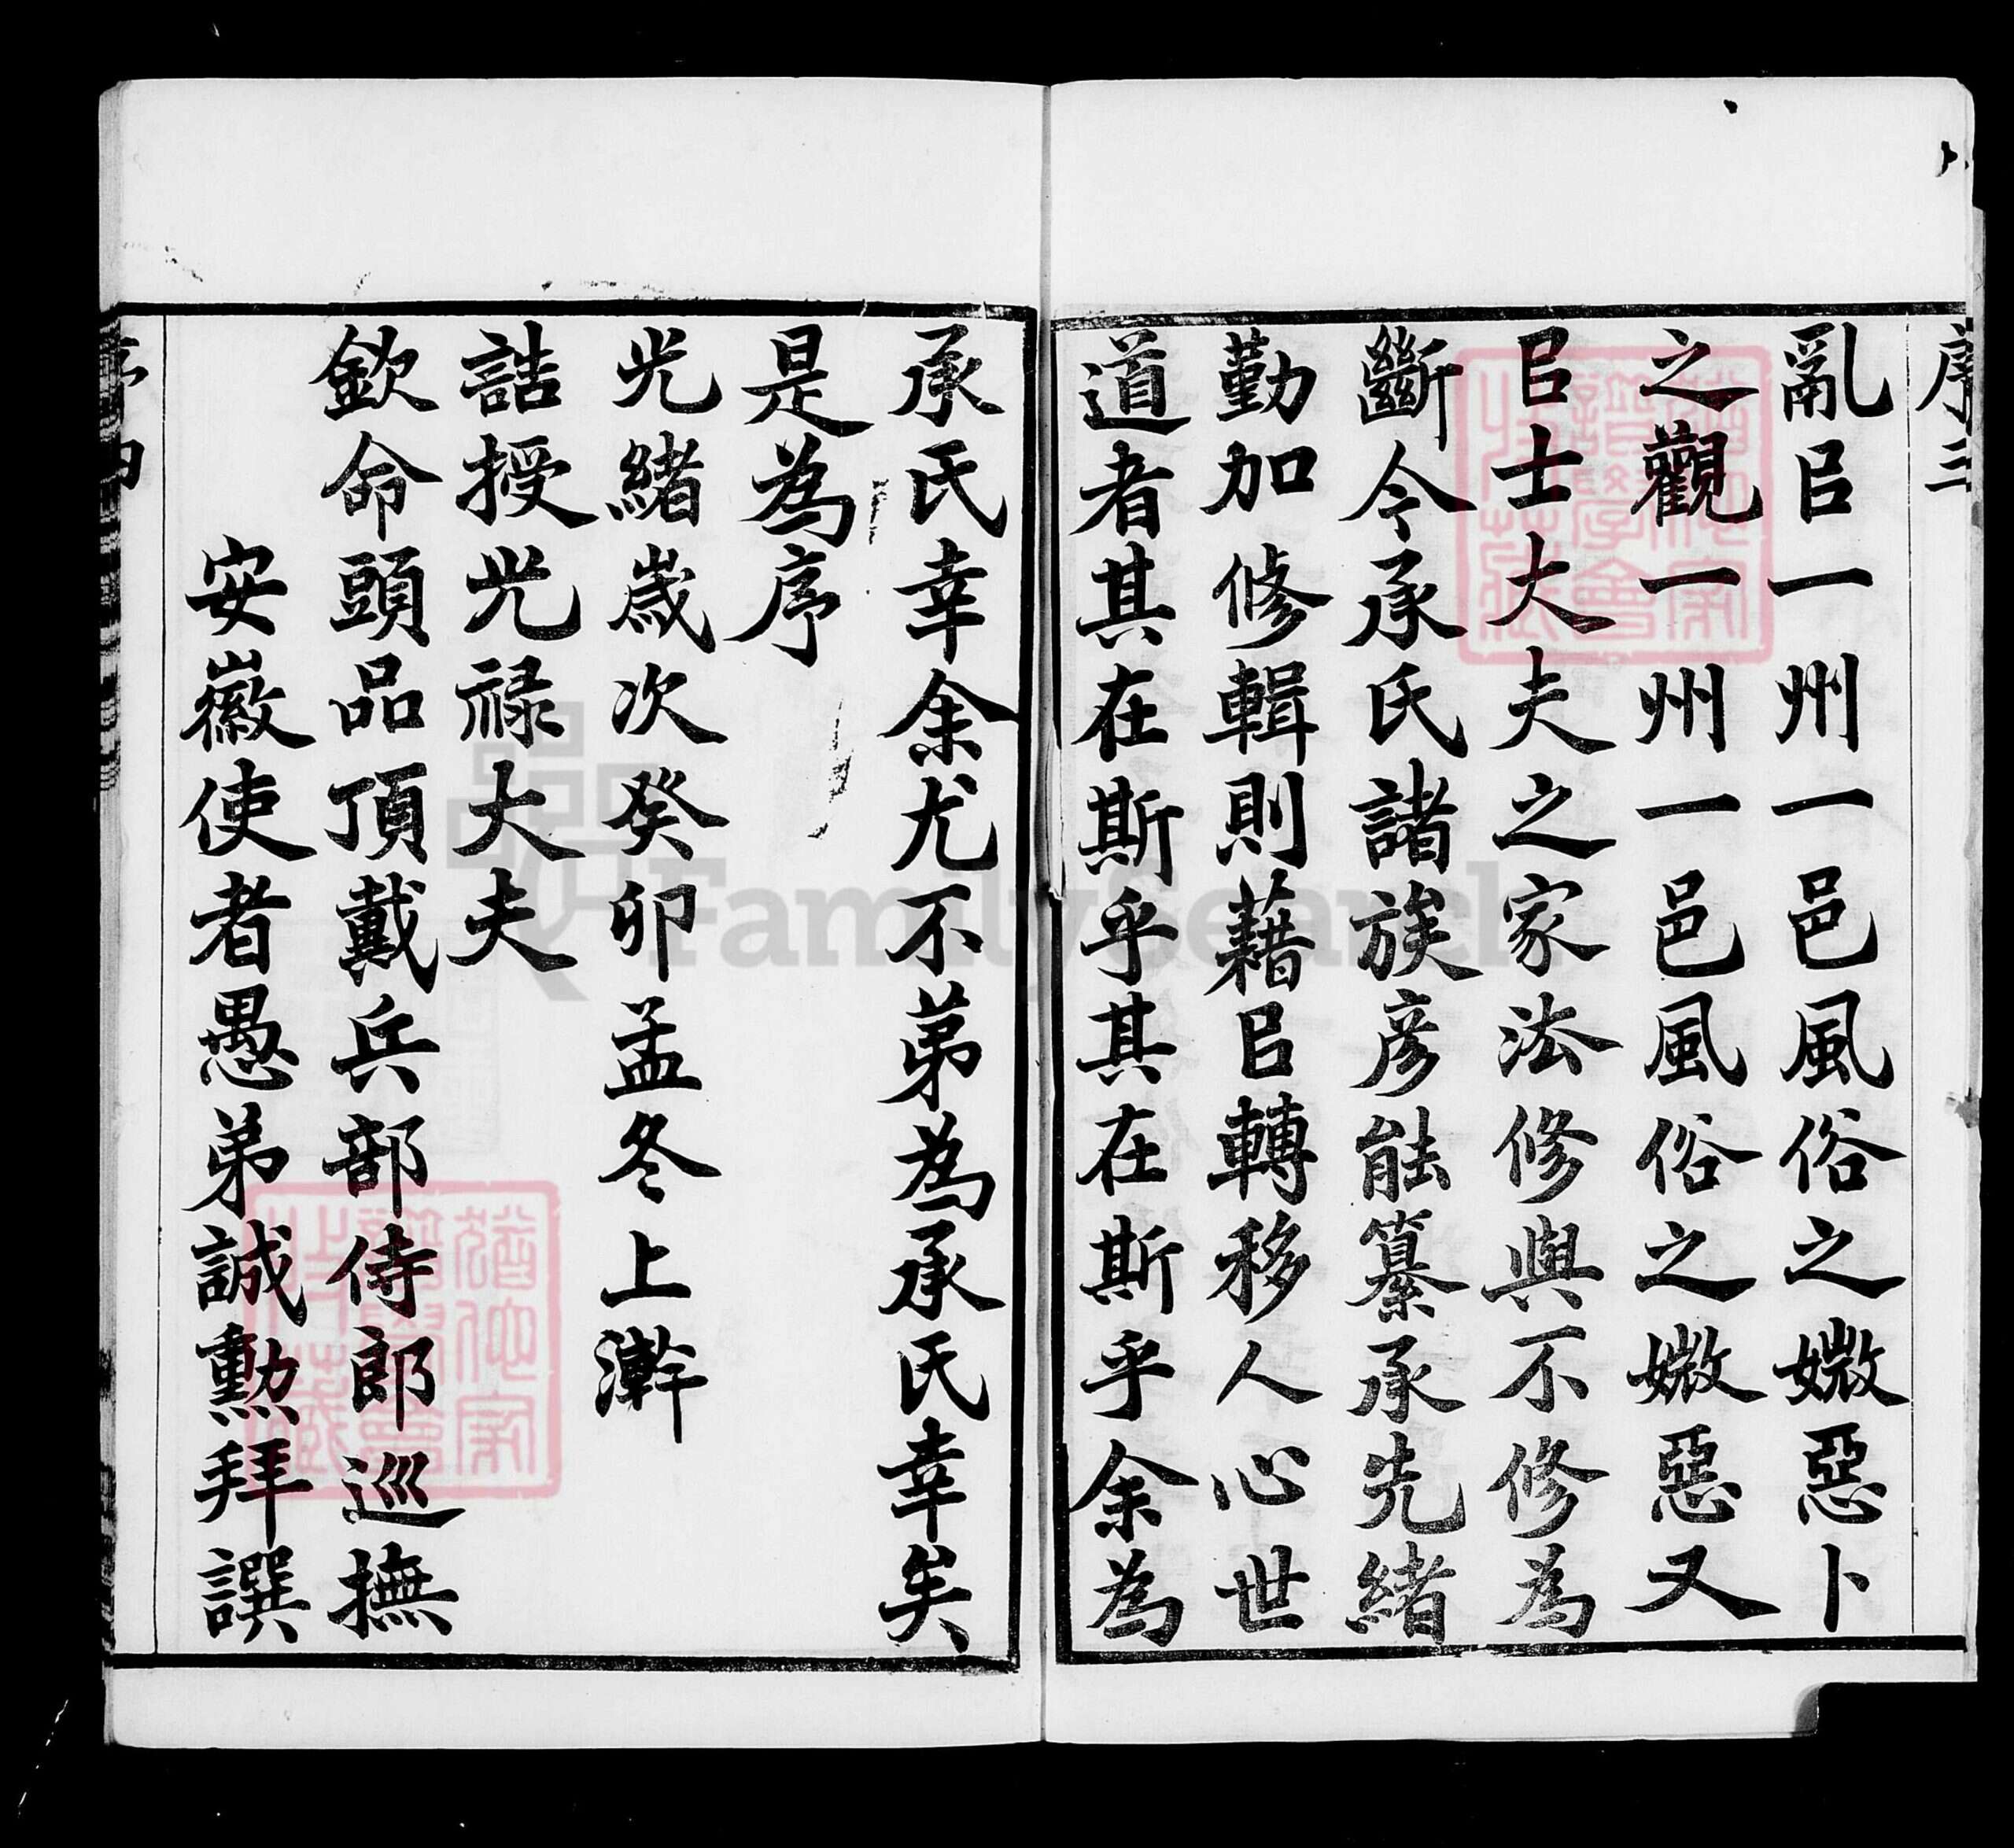 序三
亂㠯一州一邑風俗之媺惡卜
之觀一州一邑風俗之媺惡又
㠯士大夫之家法修與不修為
斷今承氏諸族彥能纂承先緒
勤加修輯則藉㠯轉移人心世
道者其在斯乎其在斯乎余為
承氏幸余尤不第為承氏幸矣
是為序
光緒歲次癸卯孟冬上澣
誥授光祿大夫
欽命頭品頂戴兵部侍郎巡撫
安徽使者愚弟誠勳拜譔
序四
FamilySearch